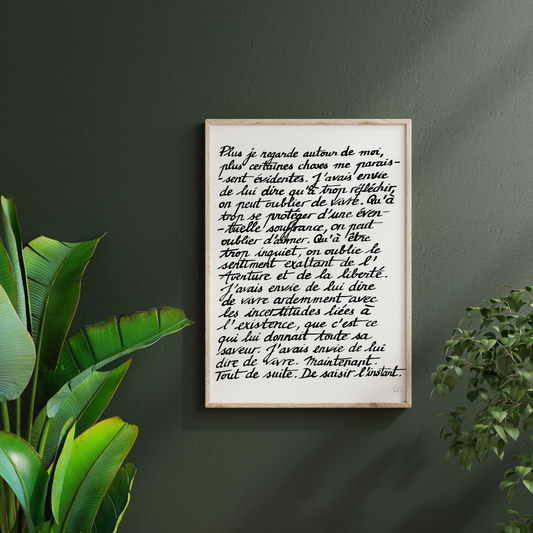 Plus je regarde autour de moi,
plus certaines choses me parais-
-sent évidentes. J'avais envie
de lui dire qu'à trop réfléchir,
on peut oublier de vivre. Qu'à
trop se protéger d'une éven-
-tuelle souffrance, on peut
oublier d'aimer. Qu'à être
trop inquiet, on oublie le
sentiment exaltant de l'
Aventure et de la liberté.
J'avais envie de lui dire
de vivre ardemment avec
les incertitudes liées à
l'existence, que c'est ce
qui lui donnait toute sa
saveur. J'avais envie de lui
dire de vivre. Maintenant.
Tout de suite. De saisir l'instant.